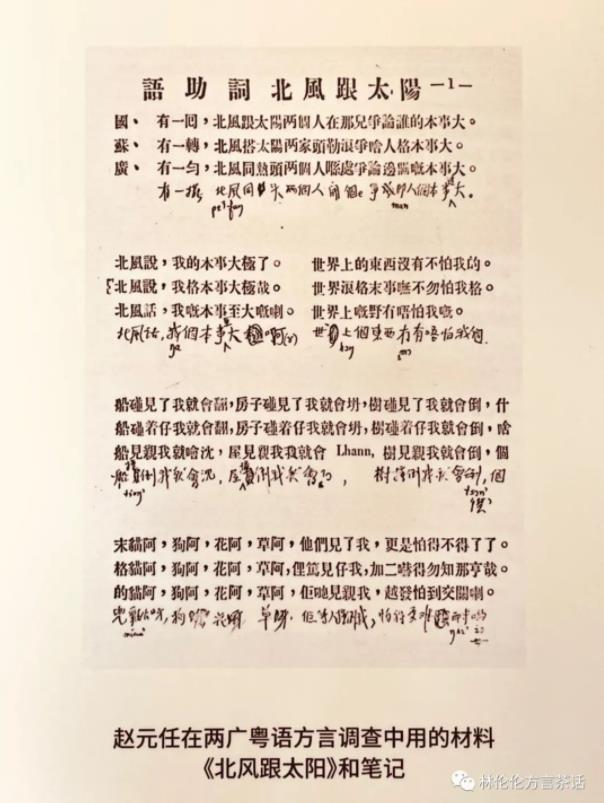 語助詞 北風跟太陽 —1—
國、 有一回，北風跟太陽两個人在那兒爭論誰的本事大。
蘇、 有一轉，北風搭太陽两家頭勒浪爭啥人格本事大。
廣、 有一勻，北風同熱頭两個人喺處爭論邊個嘅本事大。
有一 北風同 头两個人 個 爭 人個本事大。
北風說，我的本事大極了。 世界上的東西沒有不怕我的。
北風說，我格本事大極哉。 世界浪格末事嘸不勿怕我格。
北風話，我嘅本事至大嘅喇。 世界上嘅野有唔怕我嘅。
北風话，我個本事大 世 上個東西冇有唔怕我個
船碰見了我就會翻，房子碰見了我就會坍，樹碰見了我就會倒，什
船碰着仔我就會翻，房子碰着仔我就會坍，樹碰着仔我就會倒，啥
船見親我就噲沈，屋見親我我就會 Lhann，樹見親我就會倒，個
船 倒我就會沉，屋 倒我就會 ， 樹 倒我就會倒，個
末貓阿，狗阿，花阿，草阿，他們見了我，更是怕得不得了了。
格貓阿，狗阿，花阿，草阿，俚篤見仔我，加二嚇得勿知那亨哉。
的貓阿，狗阿，花阿，草阿，佢哋見親我，越發怕到交關喇。
狗 花 草
赵元任在两广粤语方言调查中用的材料
《北风跟太阳》和笔记
林伦伦方言茶话